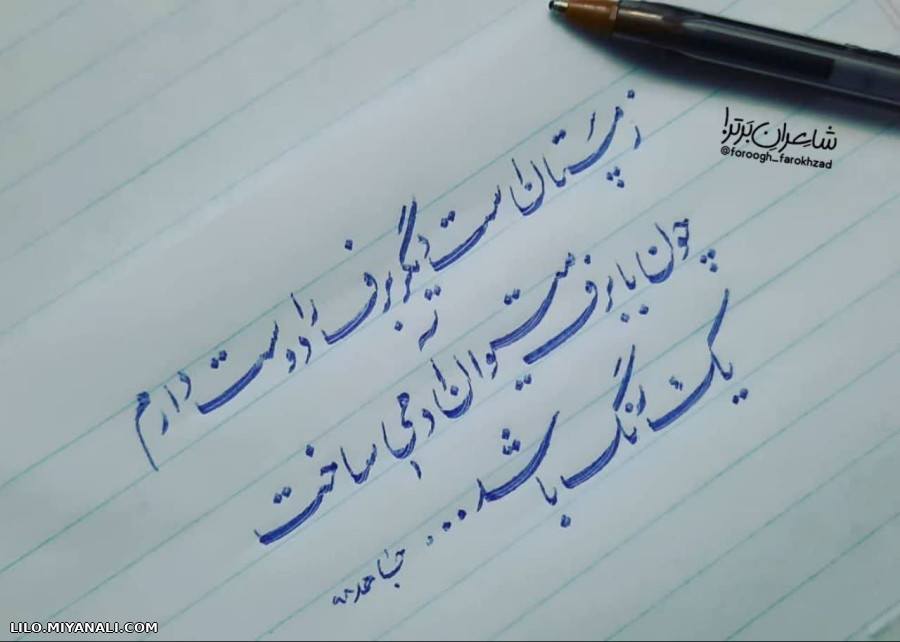 شاعرانِ بَرتر!
@foroogh_farokhzad
زمستان است دیگر برف را دوست دارم
چون با برف میتوان ادمی ساخت
یک رنگ باشد...
LILO.MIYANALI.COM